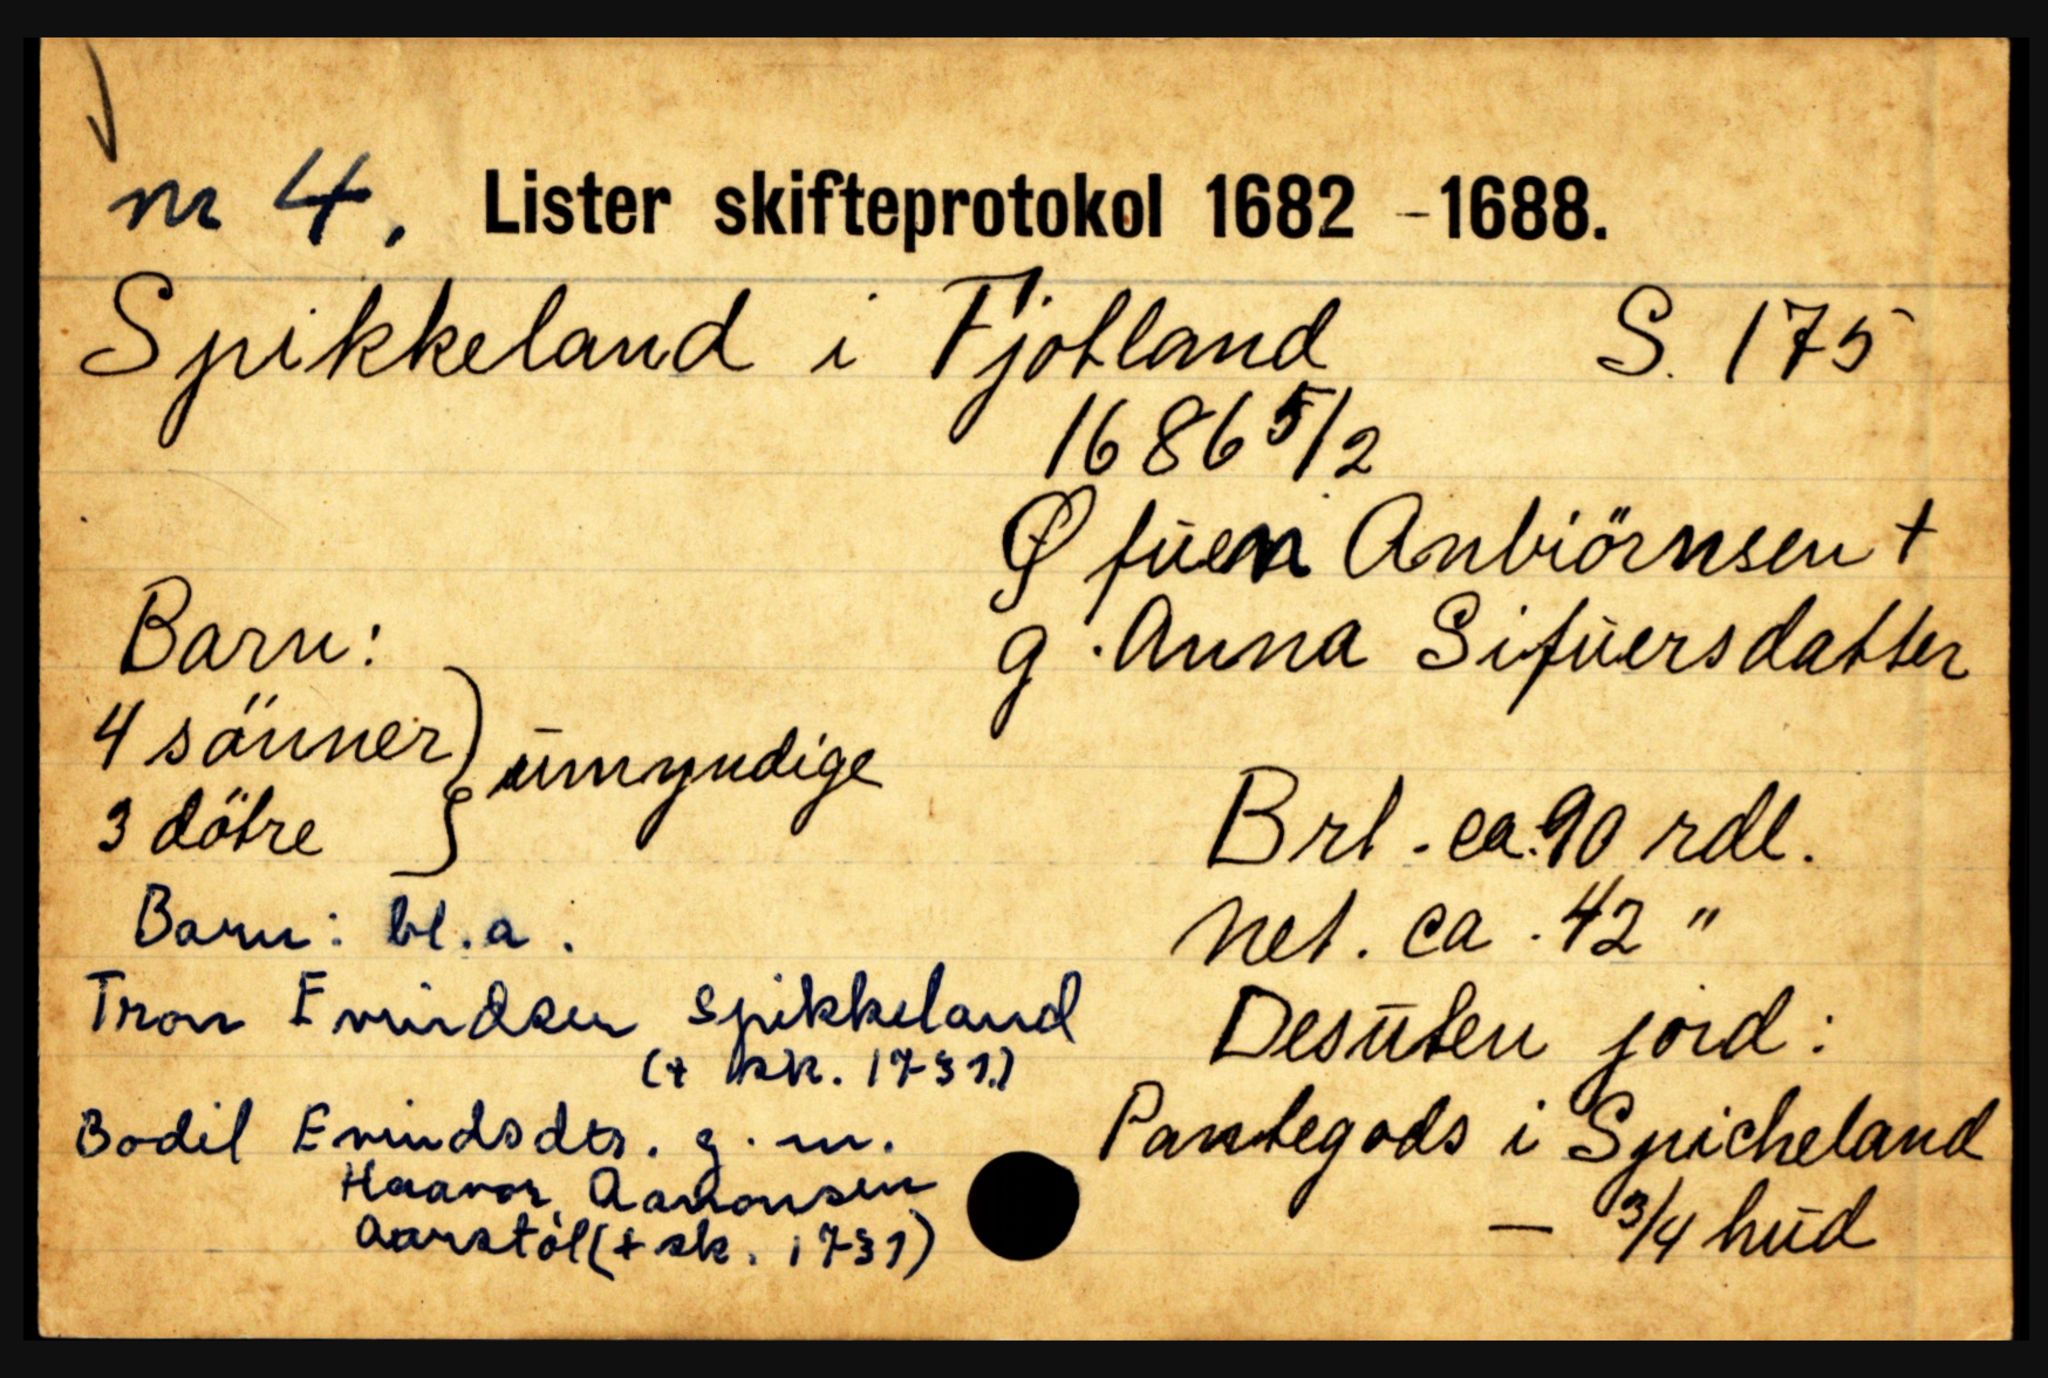 nr 4. Lister skifteprotokol 1682 - 1688.
Spikkeland i Fjotland S. 175
1686 5/2
Øfuen Anbiörnsen +
g. Anna Sifuersdatter
Barn:
4 sönner
3 dötre
umyndige
Brt. ca. 90 rdl.
Net. ca. 42 "
Desuten jord:
Pantegods i Spicheland
— 3/4 hud
Barn: bl.a.
Tron Evindsen Spikkeland
(+ sk. 1731.)
Bodil Evindsdtr. g. m.
Haavor Aanonsen
Aarstöl (+ sk. 1731)